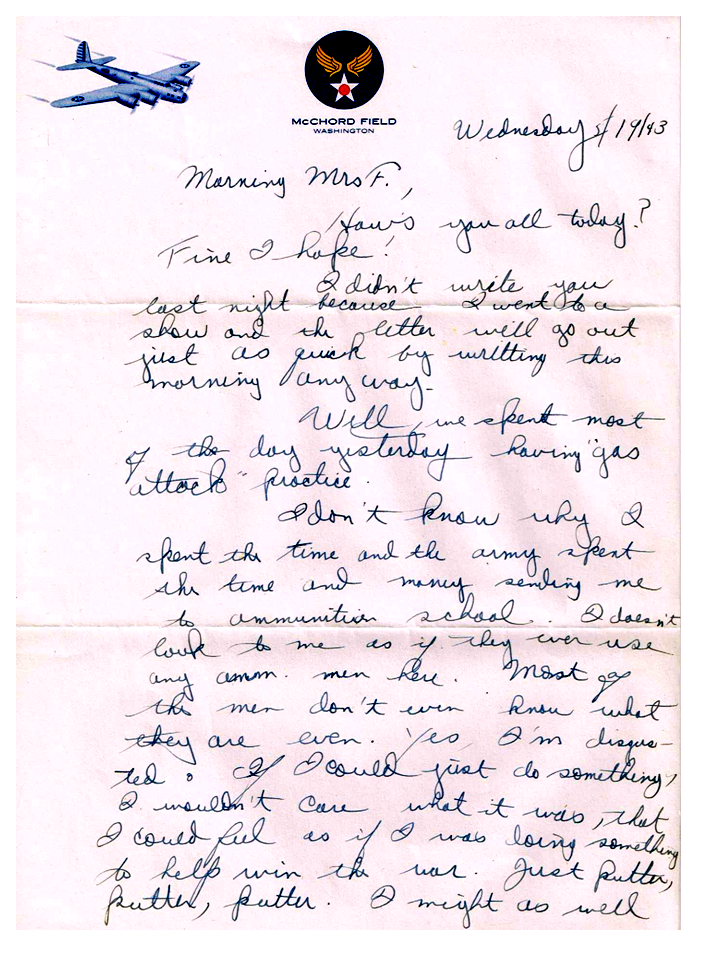 McCHORD FIELD
WASHINGTON
Wednesday 5/19/43
Morning Mrs F.,
How's you all today?
Fine I hope!
I didn't write you
last night because I went to a
show and the letter will go out
just as quick by writting this
morning any way.
Well, we spent most
of the day yesterday having "gas
attack" practice.
I don't know why I
spent the time and the army spent
the time and money sending me
to ammunition school. I doesn't
look to me as if they ever use
any amm. men here. Most of
the men don't even know what
they are even. Yes, I'm disgus-
ted. If I could just do something,
I wouldn't care what it was, that
I could feel as if I was doing something
to help win the war. Just putter,
putter, putter. I might as well